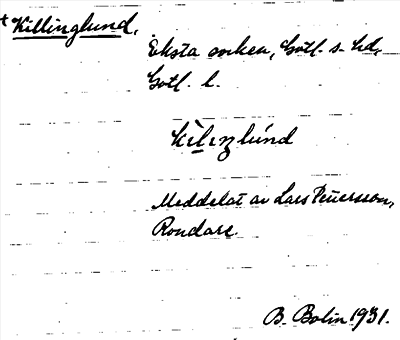 + Killinglund.
Eksta socken, Gotl. s. hd,
Gotl. l.
Meddelat av Lars Pettersson,
Rondarve.
B. Bolin 1931.